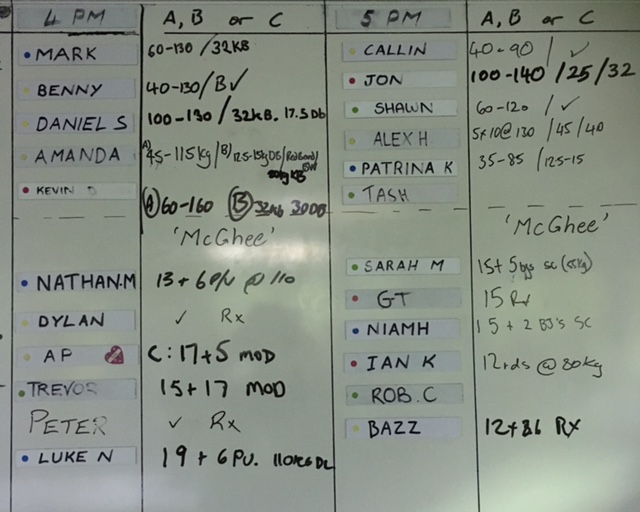 4 PM A, B or C
MARK 60-130 / 32KB
BENNY 40-130/B✓
DANIEL S 100-130 / 32KB. 17.5 Db
AMANDA A) 45-115kg/B) 12.5-15kg DB/
KEVIN (A) 60-160 (B) 32kb 30DB
'McGHEE'
NATHAN.M 13 + 6 P/U @ 110
DYLAN ✓ Rx
AP C: 17+5 MOD
TREVOR 15+17 MOD
PETER ✓ Rx
LUKE N 19 + 6 PU. 110KG DL
5 PM A, B or C
CALLIN 40-90 / ✓
JON 100-140 /25/32
SHAWN 60-120 / ✓
ALEX H 5x10@130 /45/40
PATRINA K 35-85 /12.5-15
TASH
'McGHEE'
SARAH M 15+ 5 SC
GT 15 Rx
NIAMH 15 + 2 BJ's SC
IAN K 12+ds @ 80kg
ROB.C
BAZZ 12+86 Rx